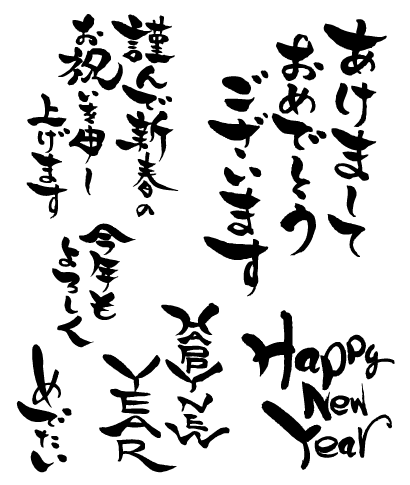 あけまして
おめでとう
ございます
謹んで新春の
お祝いを申し
上げます
今年も
よろしく
HAPPY NEW
YEAR
めでたい
Happy
New
Year